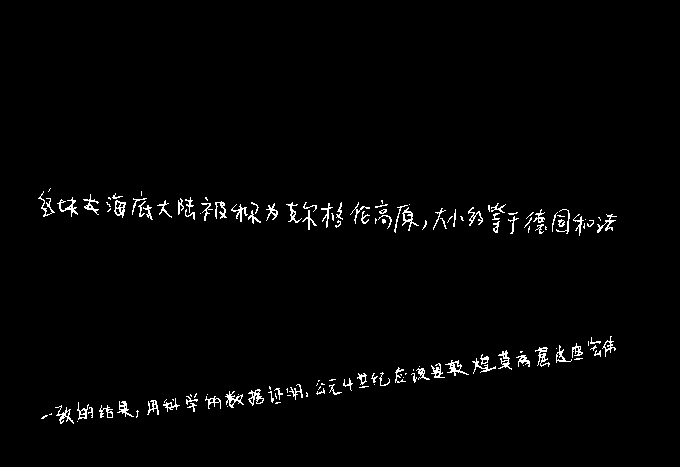 这块大海底大陆被称为克尔格伦高原,大小约等于德国和法
一致的结果,用科学的数据证明,公元4世纪应该是敦煌莫高窟这座宏伟